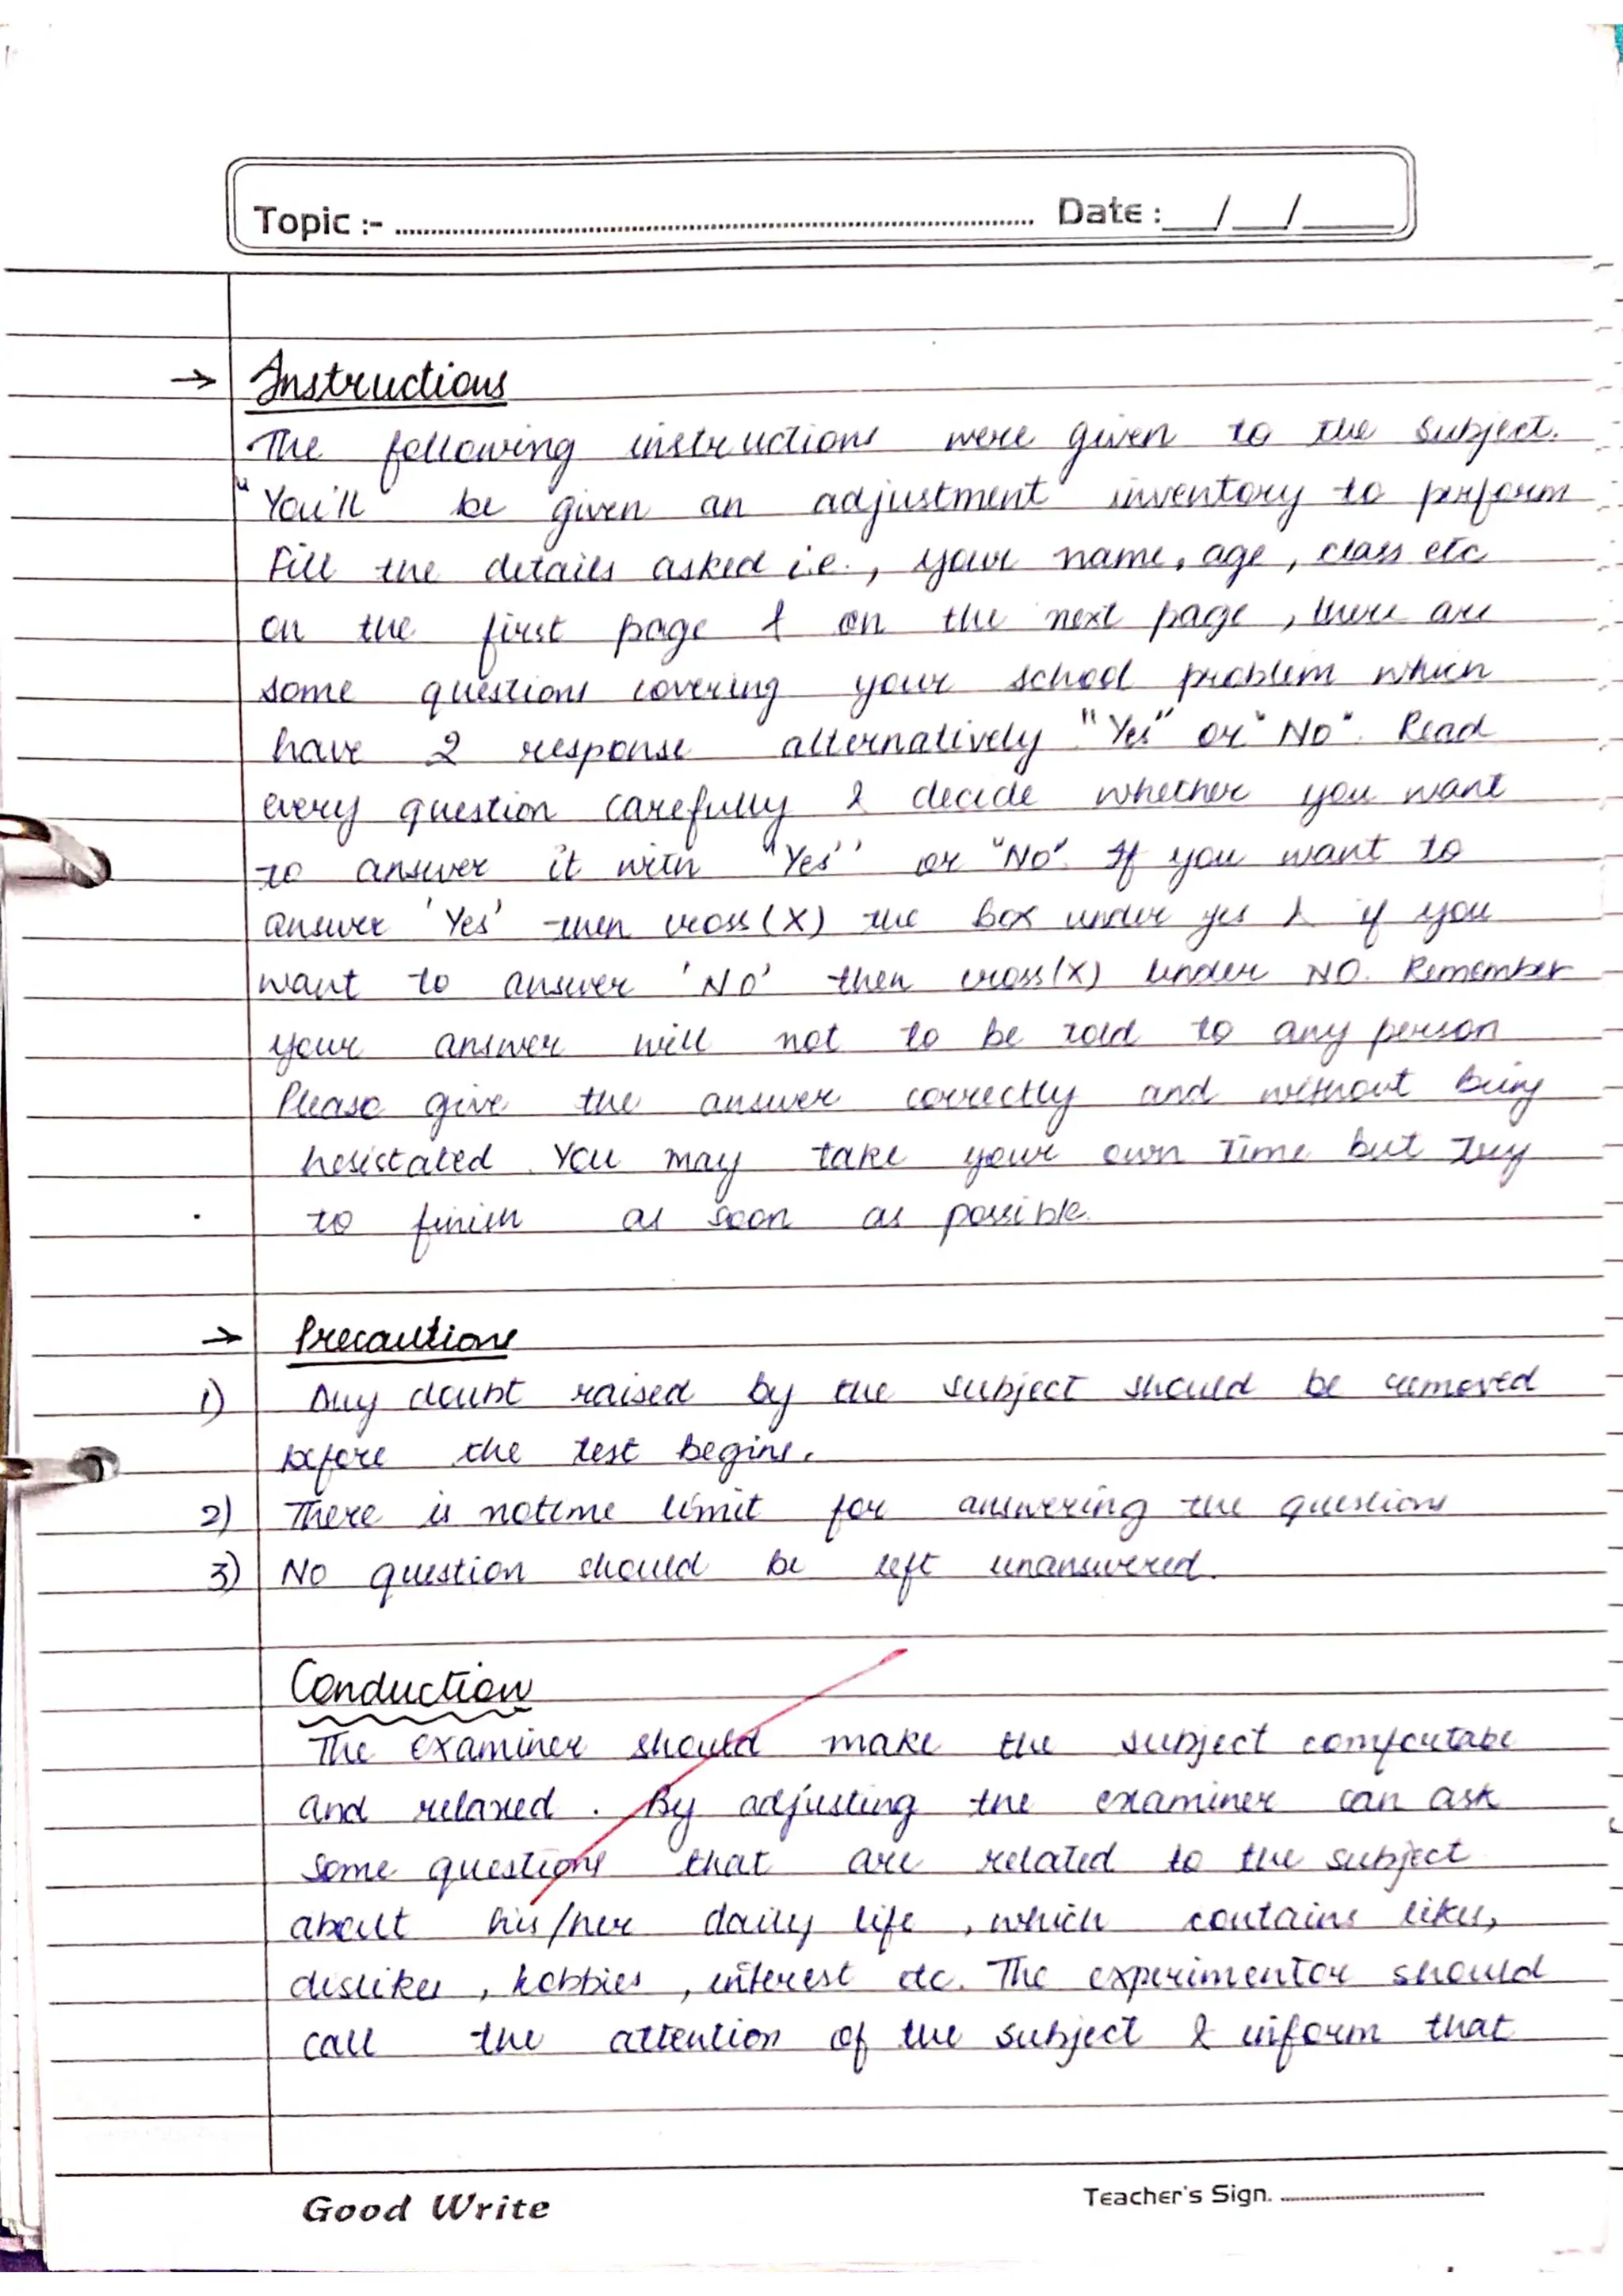 Topic :- .......... Date : __/__/____
→ Instructions
The following instructions were given to the subject.
"You'll be given an adjustment inventory to perform
Fill the details asked i.e., your name, age, class etc
on the first page & on the next page, there are
some questions covering your school problem which
have 2 response alternatively "Yes" or "No". Read
every question carefully & decide whether you want
to answer it with "Yes'' or "No". If you want to
answer 'Yes' then cross (X) the box under yes & if you
want to answer 'No' then cross (X) under NO. Remember
your answer will not to be told to any person
Please give the answer correctly and without being
hesistated. You may take your own time but try
to finish as soon as possible.
→ Precautions
1) Any doubt raised by the subject should be removed
before the test begins.
2) There is notime limit for answering the questions
3) No question should be left unanswered.
Conduction
The examiner should make the subject comfortabe
and relaxed. By adjusting the examiner can ask
some questions that are related to the subject
about his/her daily life, which contains likes,
dislikes, hobbies, interest etc. The experimentor should
call the attention of the subject & inform that
Good Write Teacher's Sign. ..........